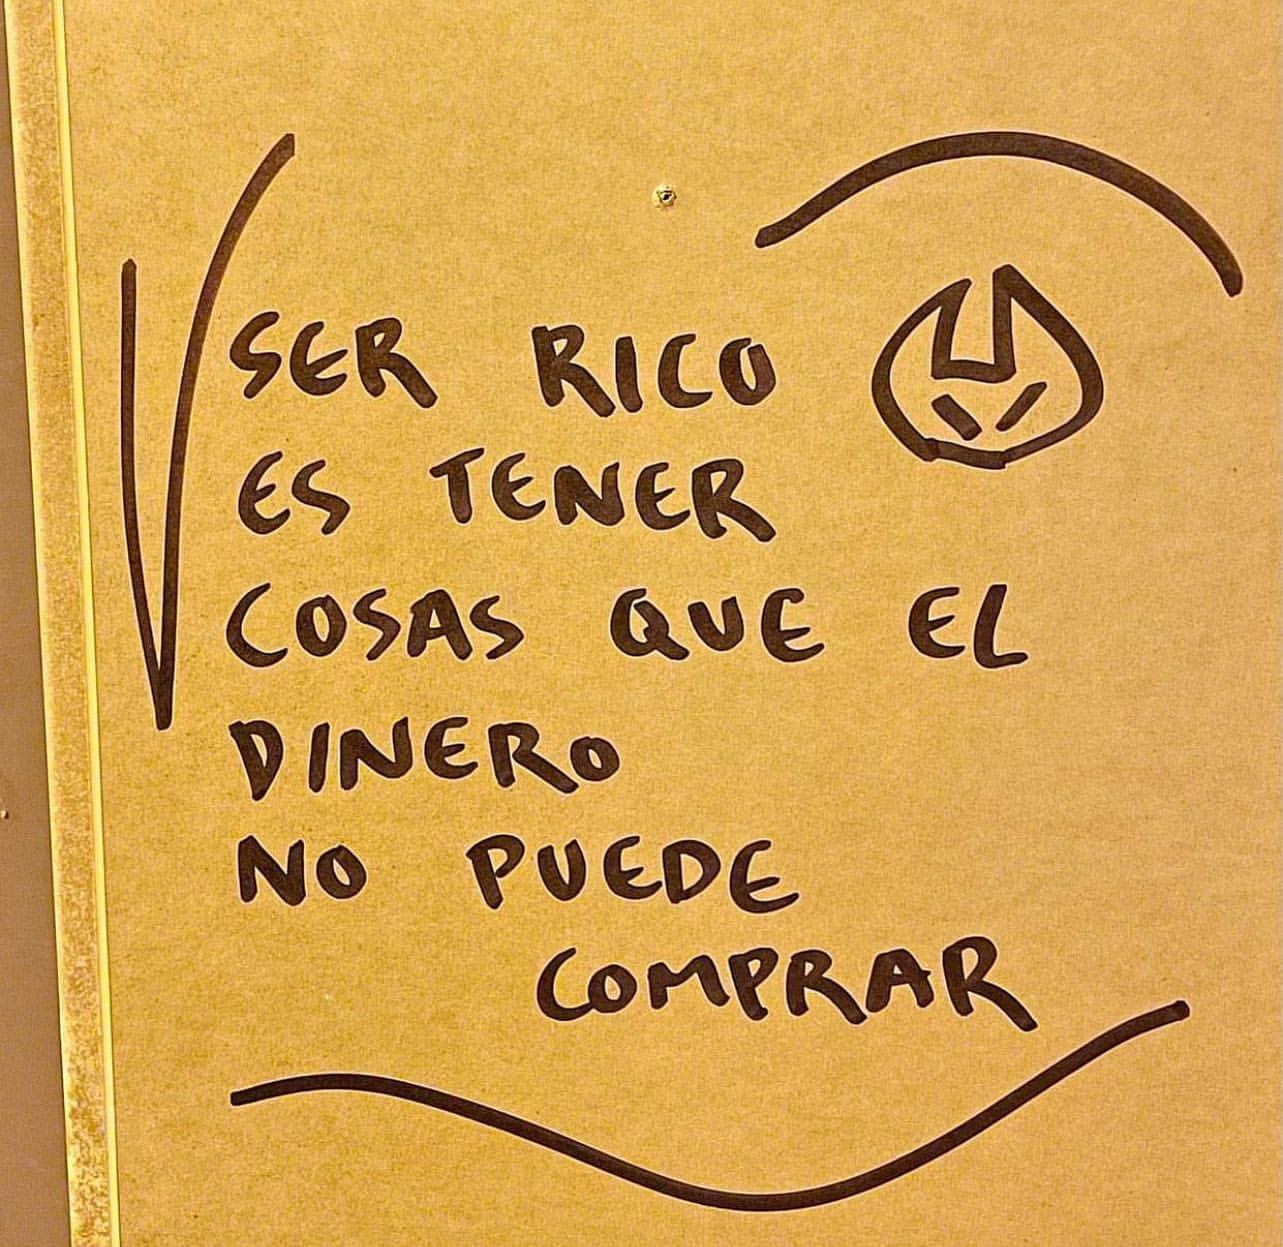 SER RICO
ES TENER
COSAS QUE EL
DINERO
NO PUEDE
COMPRAR